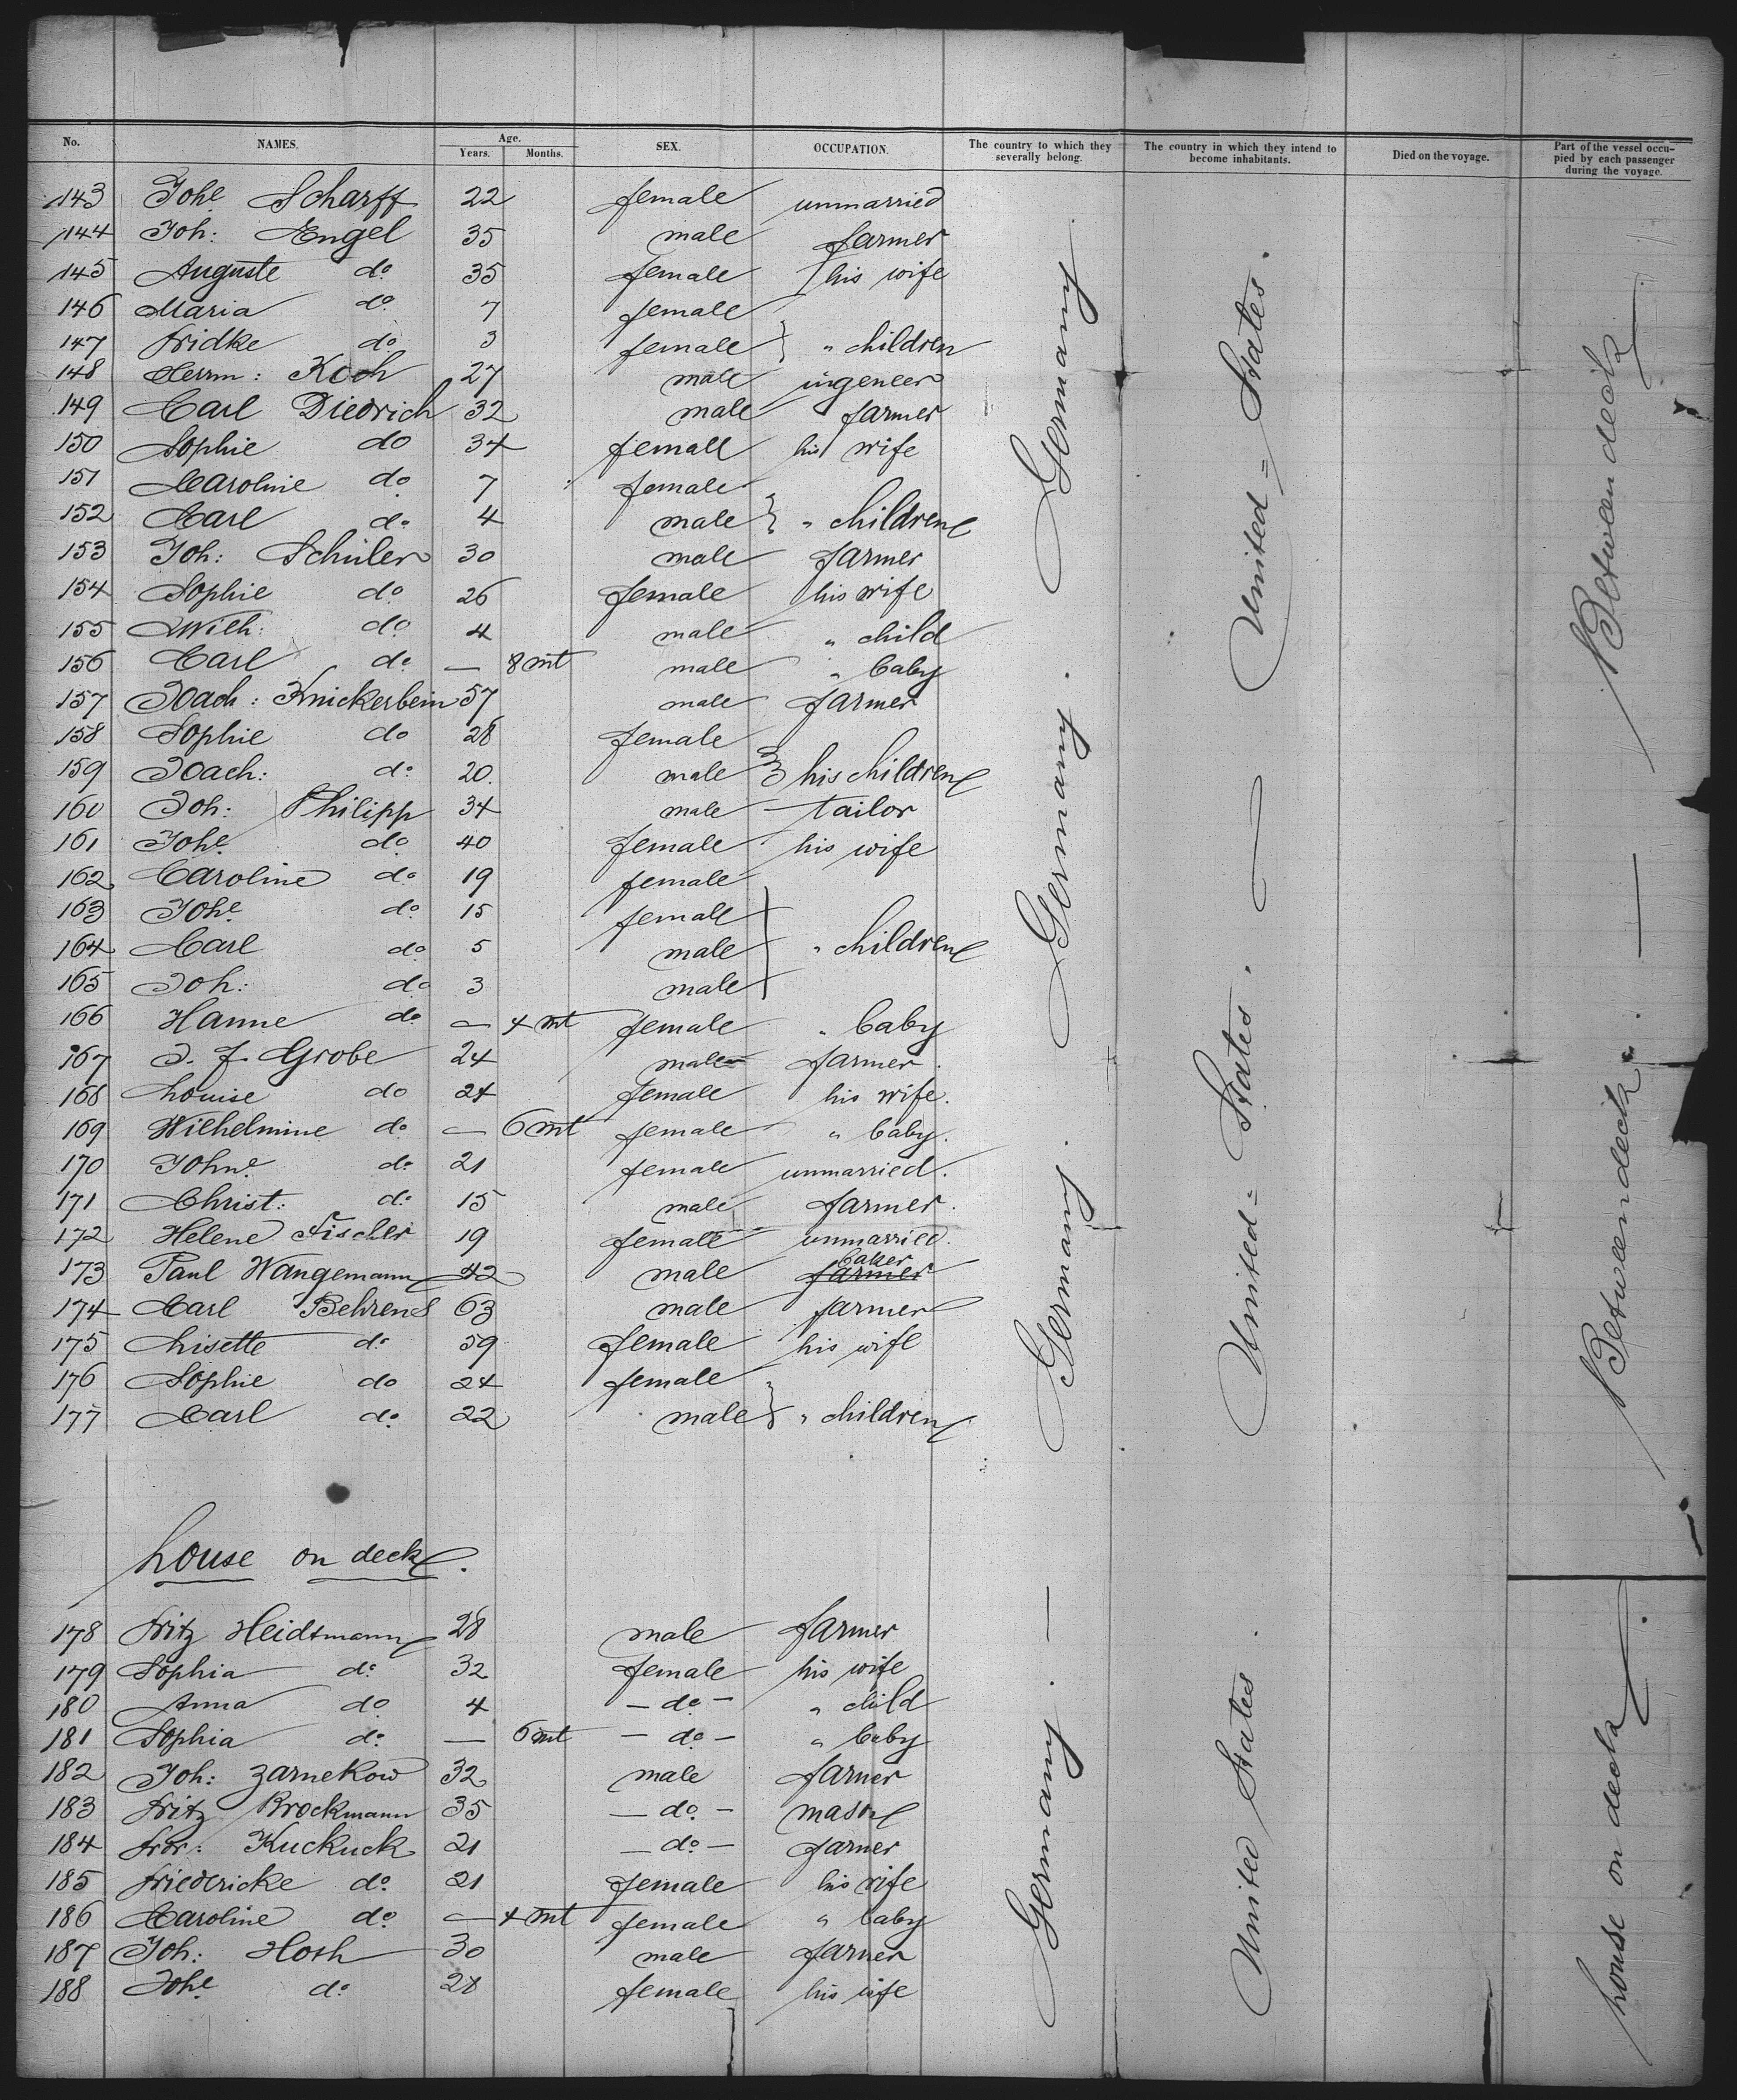 No. NAMES. Age. Years. Months. SEX. OCCUPATION. The country to which they severally belong. The country in which they intend to become inhabitants. Died on the voyage. Part of the vessel occupied by each passenger during the voyage.
143 Johe Scharff 22 female unmarried
144 Joh: Engel 35 male farmer
145 Auguste do 35 female his wife
146 Maria do 7 female
147 Fridke do 3 female } " children
148 Herrm: Koch 27 male ingeneer
149 Carl Diedrich 32 male farmer
150 Sophie do 34 female his wife
151 Caroline do 7 female
152 Carl do 4 male } " children
153 Joh: Schüler 30 male farmer
154 Sophie do 26 female his wife
155 Wilh: do 4 male " child
156 Carl do — 8 mt male " baby
157 Joach: Knickerbein 57 male farmer
158 Sophie do 28 female
159 Joach: do 20. male } his children
160 Joh: Philipp 34 male tailor
161 Johe do 40 female his wife
162 Caroline do 19 female
163 Johe do 15 female
164 Carl do 5 male } " children
165 Joh: do 3 male
166 Hanne do — 4 mt female " baby
167 J. F. Grobe 24 male farmer.
168 Louise do 24 female his wife.
169 Wilhelmine do — 6 mt female " baby.
170 Johne do 21 female unmarried.
171 Christ: do 15 male farmer.
172 Helene Fischer 19 female unmarried.
173 Paul Wangemann 42 male farmer baker
174 Carl Behrens 63 male farmer
175 Lisette do 59 female his wife
176 Sophie do 24 female
177 Carl do 22 male } " children
Germany. Germany. Germany
United=States. — United=States.
Betwendeck. — Betweendeck.
house on deck.
178 Fritz Heidtmann 28 male farmer
179 Sophia do 32 female his wife
180 Anna do 4 — do — " child
181 Sophia do — 6 mt — do — " baby
182 Joh: Zarnekow 32 male farmer
183 Fritz Brockmann 35 — do — mason
184 Frdr: Kuckuck 21 — do — farmer
185 Friedericke do 21 female his wife
186 Caroline do — 4 mt female " baby
187 Joh: Hoth 30 male farmer
188 Johe do 28 female his wife
Germany. —
United States.
house on deck.